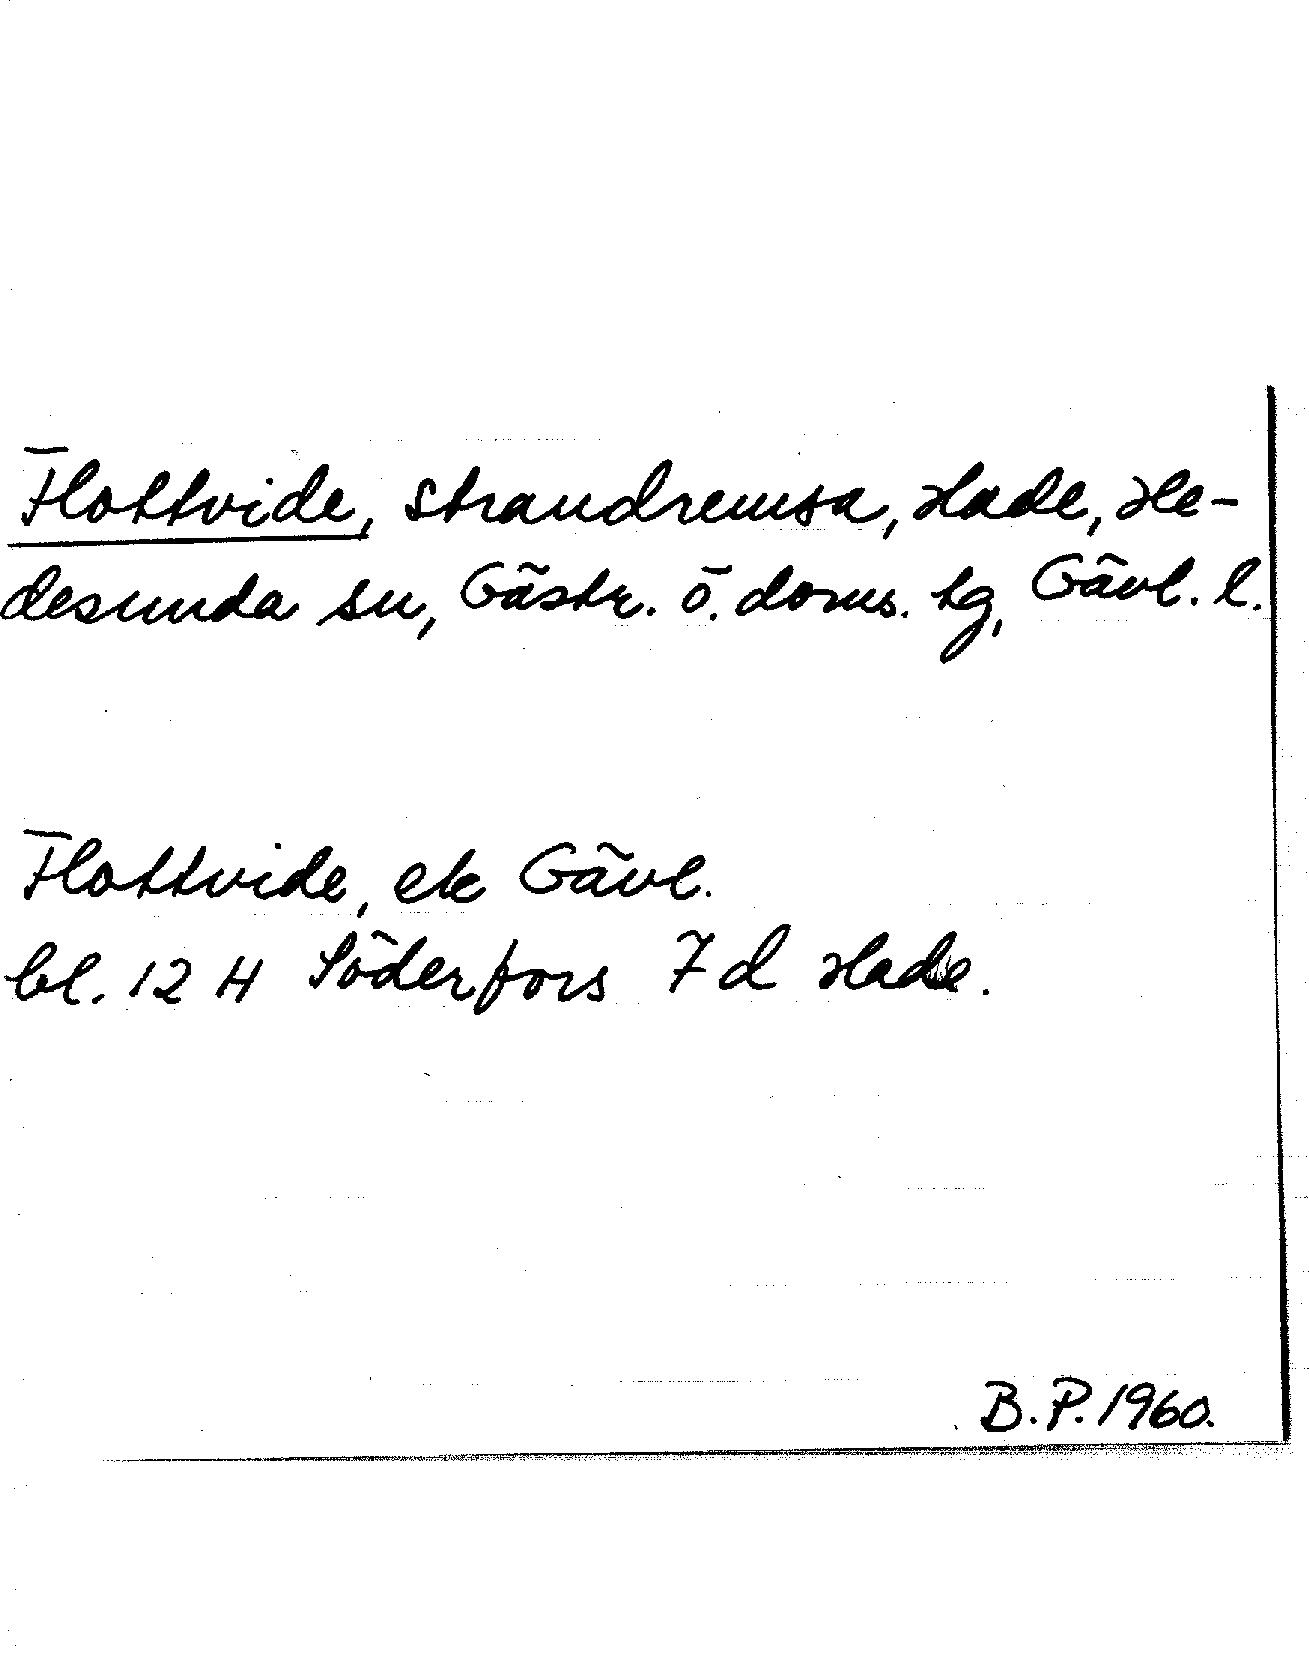 Flottvide, strandremsa, Hade, He-
desunda sn, Gästr. ö. doms. tg, Gävl. l.
Flottvide, ek Gävl.
bl. 12 H Söderfors 7 d Hade.
B.P. 1960.